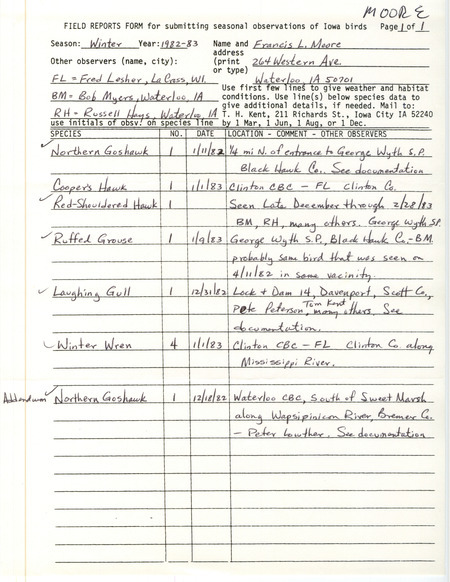 MOORE
FIELD REPORTS FORM for submitting seasonal observations of Iowa birds Page 1 of 1
Season: Winter Year: 1982-83 Name and Francis L. Moore
address
Other observers (name, city): (print 264 Western Ave.
or type)
FL = Fred Lesher, La Cross, WI. Waterloo, IA 50701
Use first few lines to give weather and habitat
BM = Bob Myers, Waterloo, IA conditions. Use line(s) below species data to
give additional details, if needed. Mail to:
RH = Russell Hays, Waterloo, IA T. H. Kent, 211 Richards St., Iowa City IA 52240
use initials of obsv. on species line by 1 Mar, 1 Jun, 1 Aug, or 1 Dec.
SPECIES NO. DATE LOCATION - COMMENT - OTHER OBSERVERS
✓ Northern Goshawk 1 1/11/82 1/4 mi N. of entrance to George Wyth S.P.
Black Hawk Co. See documentation
Cooper's Hawk 1 1/1/83 Clinton CBC - FL Clinton Co.
✓ Red-Shouldered Hawk 1 Seen Late December through 2/28/83
BM, RH, many others. George Wyth S.P.
✓ Ruffed Grouse 1 1/9/83 George Wyth S.P., Black Hawk Co.-BM.
probably same bird that was seen on
4/11/82 in same vacinity.
✓ Laughing Gull 1 12/31/82 Lock + Dam 14, Davenport, Scott Co.,
Pete Peterson, Tom Kent, many others. See
documentation.
✓ Winter Wren 4 1/1/83 Clinton CBC - FL Clinton Co. along
Mississippi River.
Addendum ✓ Northern Goshawk 1 12/18/82 Waterloo CBC, South of Sweet Marsh
along Wapsipinicon River, Bremer Co.
- Peter Lowther. See documentation